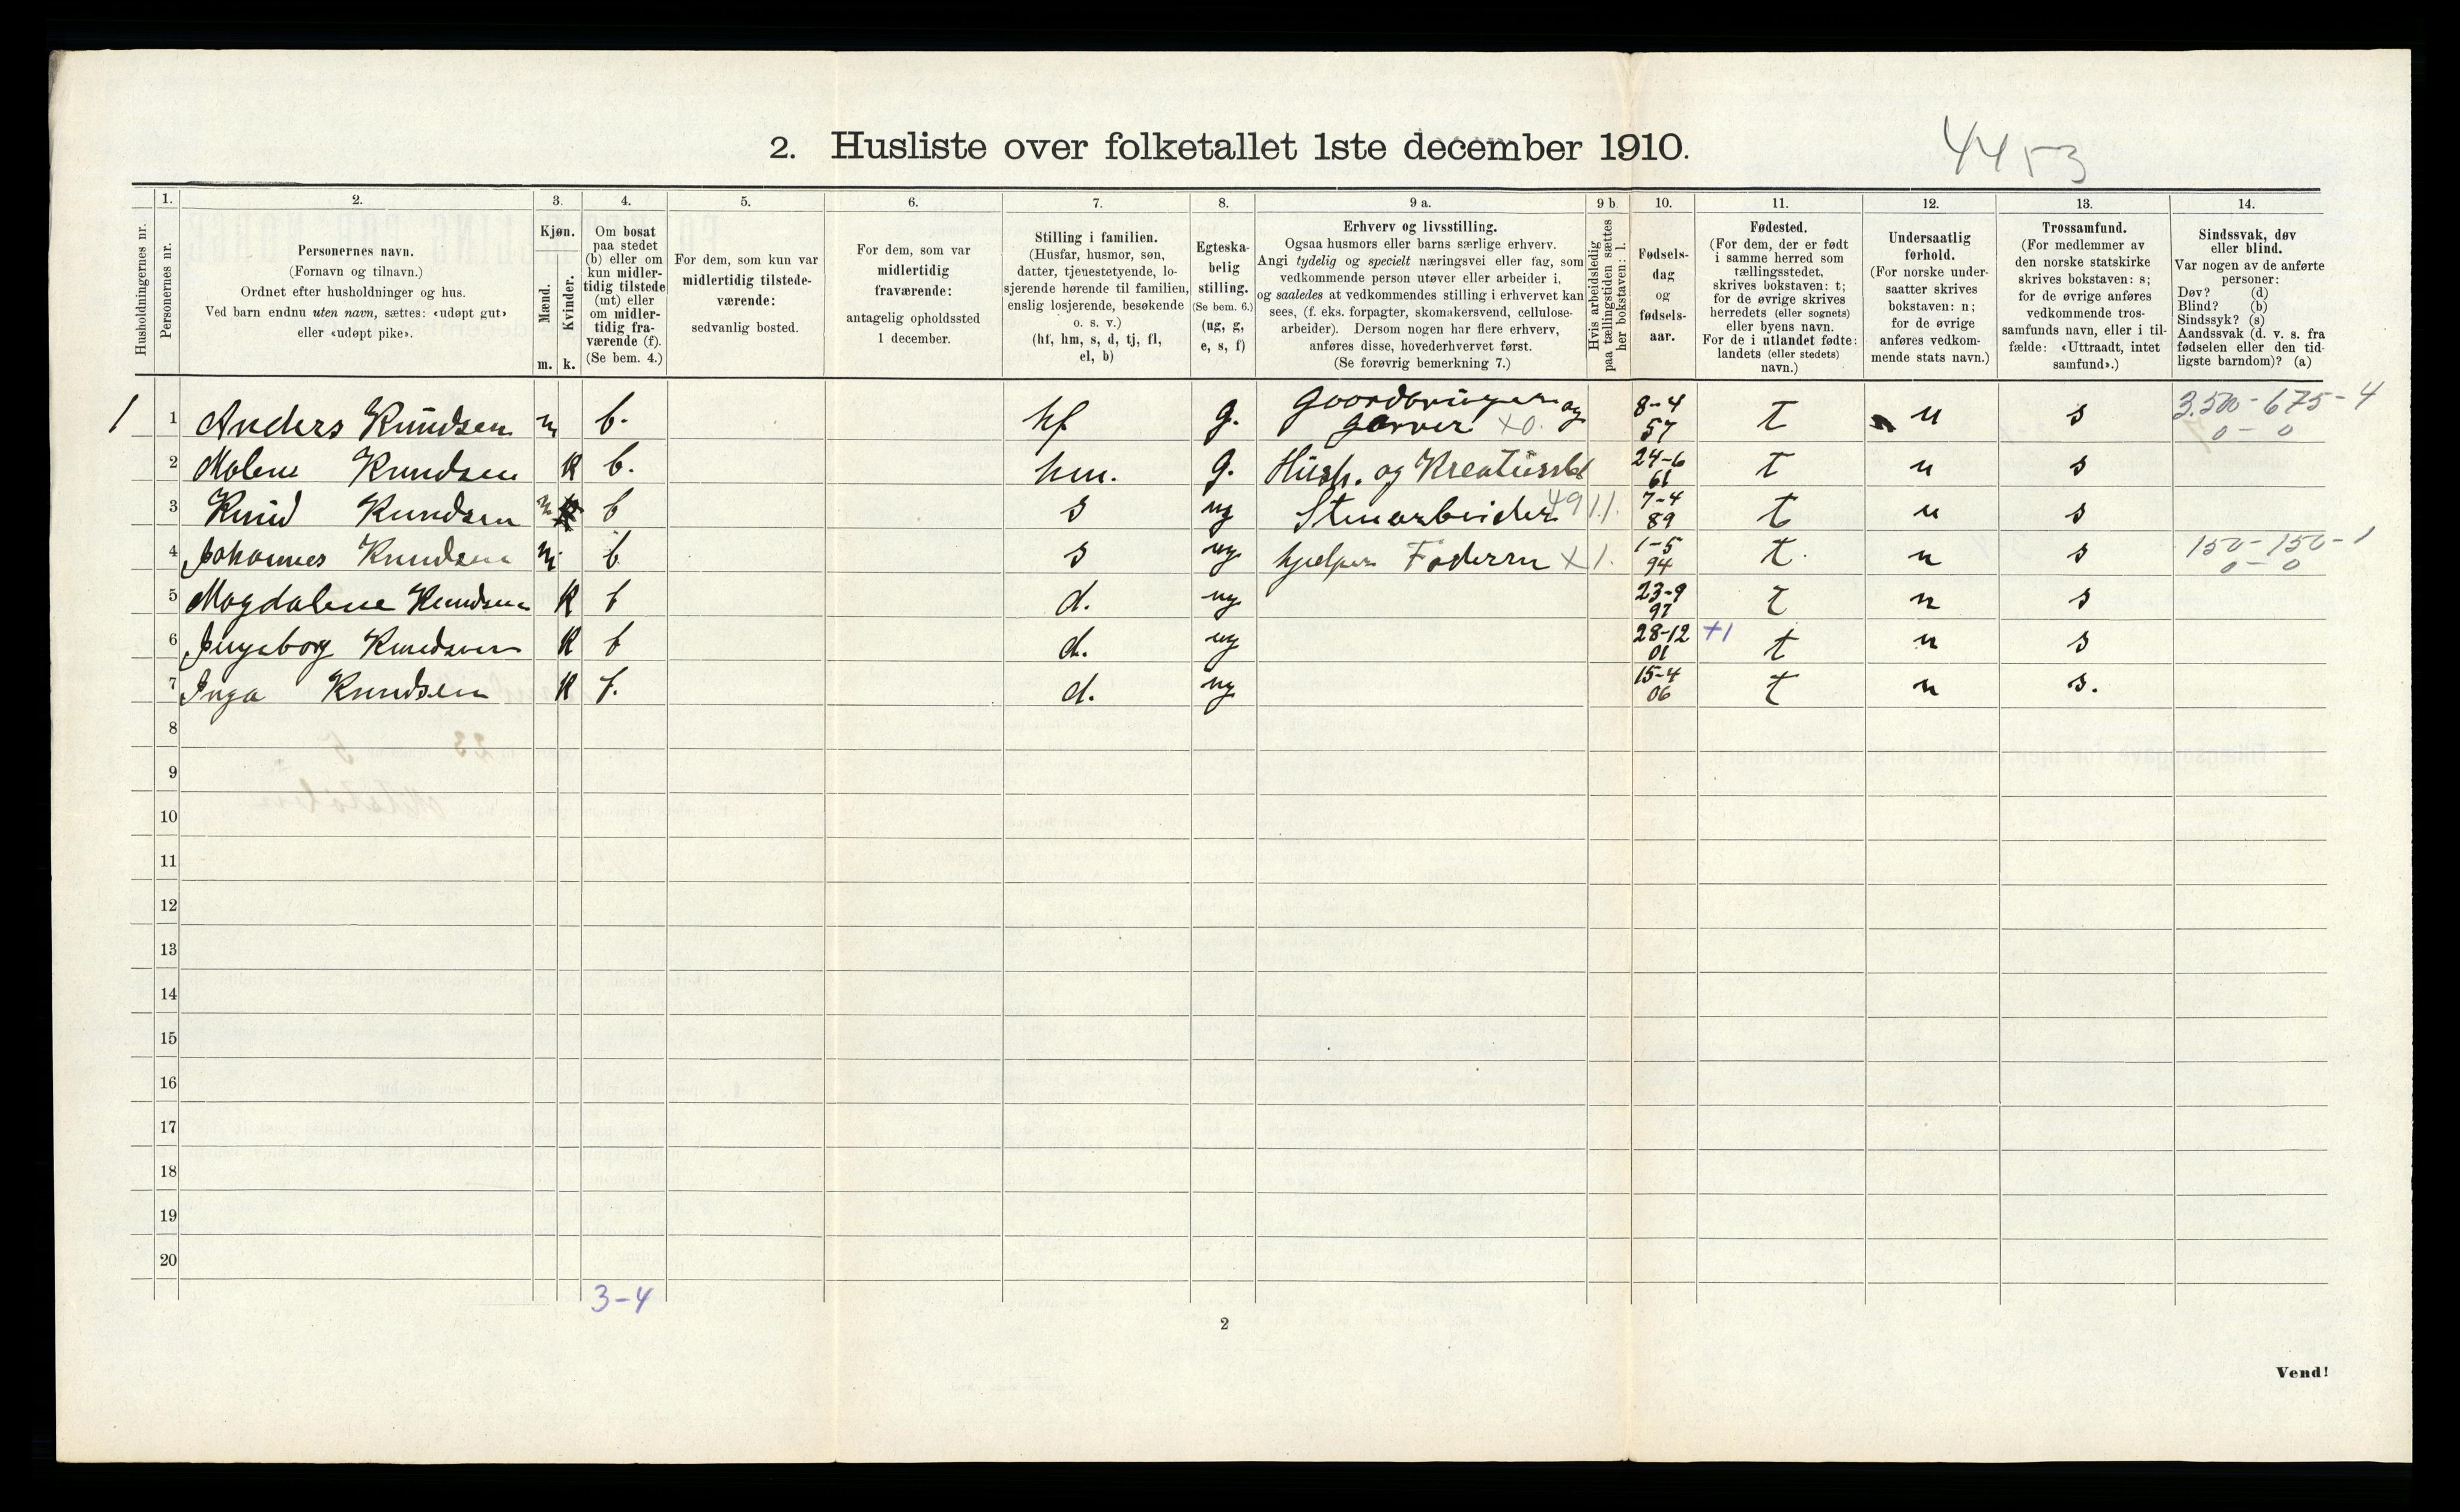 2. Husliste over folketallet 1ste december 1910.
4453
Husholdningernes nr.
1.
Personernes nr.
2.
Personernes navn.
(Fornavn og tilnavn.)
Ordnet efter husholdninger og hus.
Ved barn endnu uten navn, sættes: «udøpt gut»
eller «udøpt pike».
3.
Kjøn.
Mænd.
Kvinder.
m. k.
4.
Om bosat
paa stedet
(b) eller om
kun midler-
tidig tilstede
(mt) eller
om midler-
tidig fra-
værende (f).
(Se bem. 4.)
5.
For dem, som kun var
midlertidig tilstede-
værende:
sedvanlig bosted.
6.
For dem, som var
midlertidig
fraværende:
antagelig opholdssted
1 december.
7.
Stilling i familien.
(Husfar, husmor, søn,
datter, tjenestetyende, lo-
sjerende hørende til familien,
enslig losjerende, besøkende
o. s. v.)
(hf, hm, s, d, tj, fl,
el, b)
8.
Egteska-
belig
stilling.
(Se bem. 6.)
(ug, g,
e, s, f)
9 a.
Erhverv og livsstilling.
Ogsaa husmors eller barns særlige erhverv.
Angi tydelig og specielt næringsvei eller fag, som
vedkommende person utøver eller arbeider i,
og saaledes at vedkommendes stilling i erhvervet kan
sees, (f. eks. forpagter, skomakersvend, cellulose-
arbeider). Dersom nogen har flere erhverv,
anføres disse, hovederhvervet først.
(Se forøvrig bemerkning 7.)
9 b.
Hvis arbeidsledig
paa tællingstiden sættes
her bokstaven: l.
10.
Fødsels-
dag
og
fødsels-
aar.
11.
Fødested.
(For dem, der er født
i samme herred som
tællingsstedet,
skrives bokstaven: t;
for de øvrige skrives
herredets (eller sognets)
eller byens navn.
For de i utlandet fødte:
landets (eller stedets)
navn.)
12.
Undersaatlig
forhold.
(For norske under-
saatter skrives
bokstaven: n;
for de øvrige
anføres vedkom-
mende stats navn.)
13.
Trossamfund.
(For medlemmer av
den norske statskirke
skrives bokstaven: s;
for de øvrige anføres
vedkommende tros-
samfunds navn, eller i til-
fælde: «Uttraadt, intet
samfund».)
14.
Sindssvak, døv
eller blind.
Var nogen av de anførte
personer:
Døv? (d)
Blind? (b)
Sindssyk? (s)
Aandssvak (d. v. s. fra
fødselen eller den tid-
ligste barndom)? (a)
1 1 Anders Knudsen m b. hf g. Gaardbruger og garver x0. 8-4 57 t n s 3.500-675-4 0-0
2 Malene Knudsen K b. hm. g. Hush. og Kreaturstel 24-6 61 t n s
3 Knud Knudsen m b s ug Stenarbeider 49 1.1. 7-4 89 t n s
4 Johannes Knudsen m b s ug. hjelper Faderen x 1. 1-5 94 t. n s 150-150-1 0-0
5 Magdalene Knudsen K b d. ug 23-9 97 t n s
6 Ingeborg Knudsen K b d. ug 28-12 01 +1 t n s
7 Inga Knudsen K b. d. ug 15-4 06 t n s.
8
9
10
11
12
13
14
15
16
17
18
19
20
3-4
2
Vend!